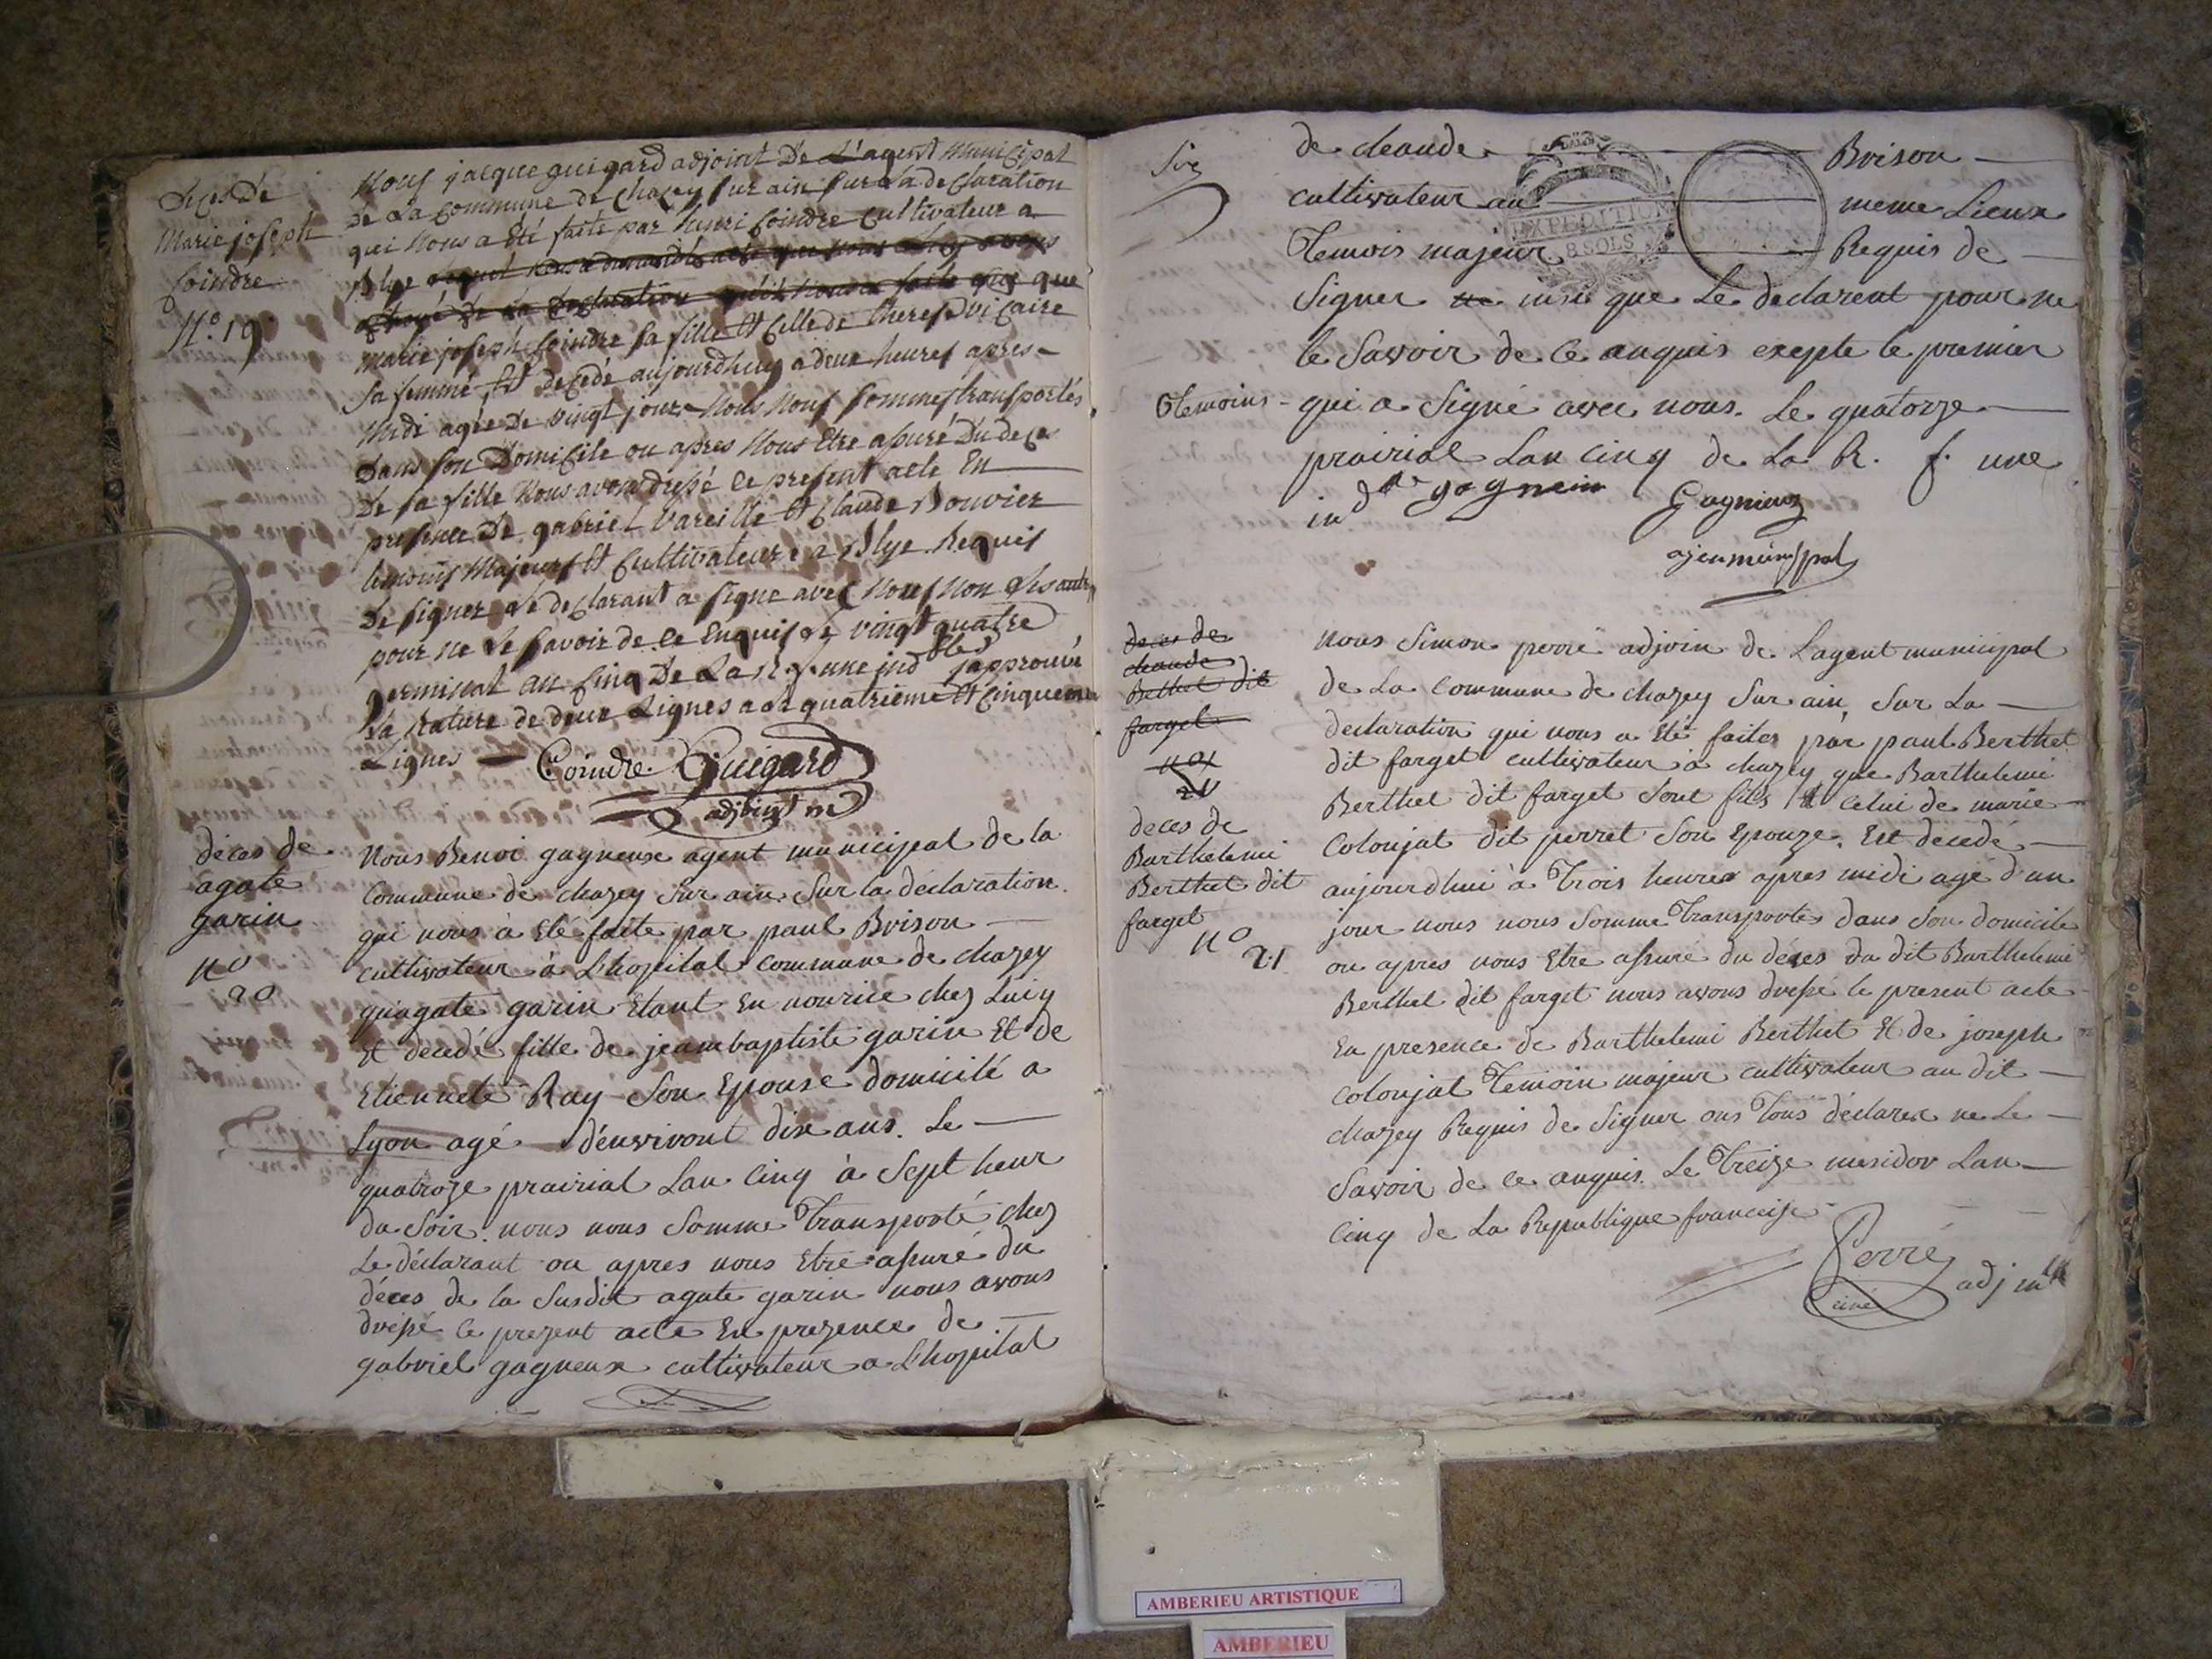 Deces De
Marie joseph
Coindre
N.º 19
Nous jacque guigard adjoint De L'agent Municipal
De La Commune de Chazey sur ain sur La declaration
qui Nous a Eté faite par henri Coindre Cultivateur a
Blye
que
marie joseph Coindre sa fille Et Celle de therese Vicaire
sa femme Est decedé aujourdhuy a deux heures apres
Midi agée De vingt jours Nous Nous sommes transportés
Dans son Domicile ou apres Nous Etre assuré Du deces
De sa fille Nous avons dressé ce present acte En
presence De gabriel Vareille Et Claude Bouvier
temoins Majeurs Et Cultivateurs a Blye Requis
De signer Le declarant a signe avec Nous Non Les autres
pour ne Le savoir de ce Enquis Le vingt quatre
germinal an Cinq De La R. f. une ind ble japprouve
La Rature de deux Lignes a La quatrieme Et Cinquieme
Lignes Coindre Guigard
adjoint m
déces de
agate
garin
Nº
20
Nous Benoi gagneux agent municipal de la
Commune de chazey sur ain sur la déclaration
qui nous à Eté faite par paul Brison
cultivateur à L'hopital commune de chazey
quagate garin Etant En nourice chez Luiy
Et décedé fille de jeambaptiste garin Et de
Etiennete Ray son Epouse domicilé a
Lyon agé d'environt dix ans. Le
quatroze prairial Lan Cinq à Sept heur
du Soir. nous nous Somme Transporté chez
Le déclarant ou apres nous Etre assuré du
déces de la Susdit agate garin nous avons
dressé le prezent acte En prezence de
gabriel gagneux cultivateur a L'hopital
Six
de claude Brison
cultivateur au meme Lieux
Temois majeur Requis de
EXPEDITION
8 SOLS
Signer insi que Le declarent pour ne
le Savoir de Ce anquis exepte le premier
Temoins qui a Signé avec nous. Le quatorze
prairial Lan cinq de La R. f. une
ind ble gagnein Gagnieux
ajen munispal
deces de
claude
Bethet dit
farget
nous Simon perré adjoin de Lagent municipal
de La Commune de chazey Sur ain, Sur La
declaration qui nous a Eté faites par paul Berthet
dit farget cultivateur à chazey que Barthelemi
Berthet dit farget Sont fils Et Celui de marie
Colonjat dit perret Son Epouze. Est décedé
deces de
Barthelemi
Berthet dit
farget
Nº
21
aujourdhui à Trois heures apres midi agé d'un
jour nous nous Somme Transportés dans Son domicile
ou apres nous Etre assuré du déces du dit Barthelemi
Berthet dit farget nous avons dressé le present acte
En presence de Barthelemi Berthet Et de joseph
colonjat Temoin majeur cultivateur au dit
chazey Requis de Signer ons Tous déclarer ne Le
Savoir de ce anquis. Le Treize mesidor Lan
Cinq de La Republique francaise
Perré
ainé
adj m
AMBERIEU ARTISTIQUE
AMBERIEU